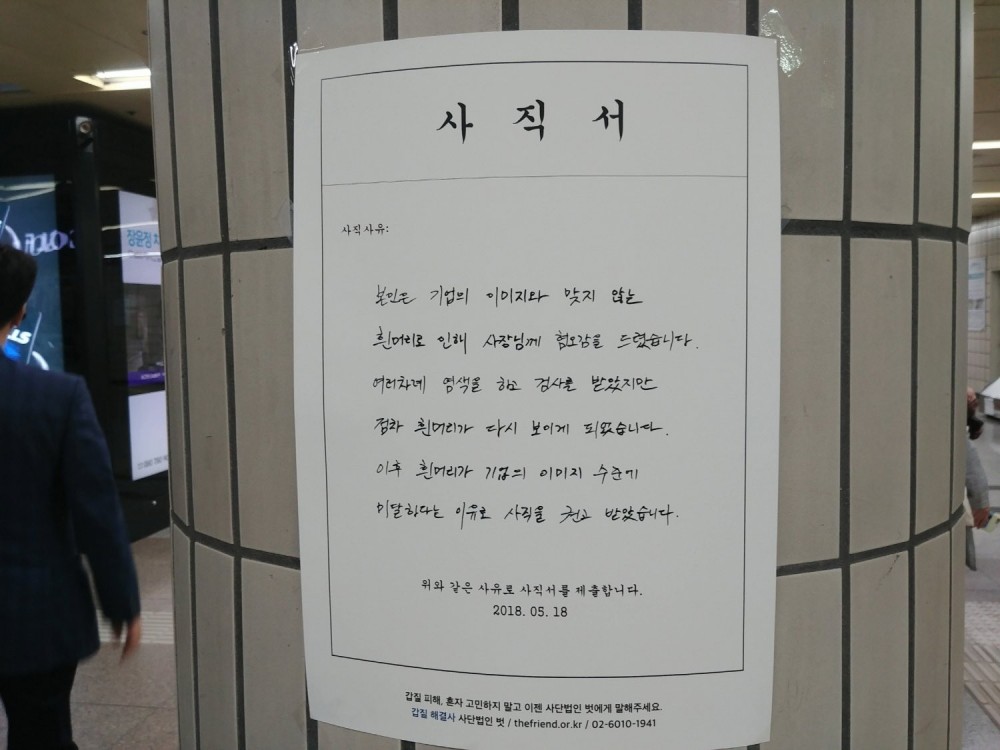 사 직 서
사직사유:
본인은 기업의 이미지와 맞지 않는
흰머리로 인해 사장님께 혐오감을 드렸습니다.
여러차례 염색을 하고 검사를 받았지만
점차 흰머리가 다시 보이게 되었습니다.
이후 흰머리가 기업의 이미지 수준에
미달한다는 이유로 사직을 권고 받았습니다.
위와 같은 사유로 사직서를 제출합니다.
2018. 05. 18
갑질 피해, 혼자 고민하지 말고 이젠 사단법인 벗에게 말해주세요.
갑질 해결사 사단법인 벗 / thefriend.or.kr / 02-6010-1941
장윤정